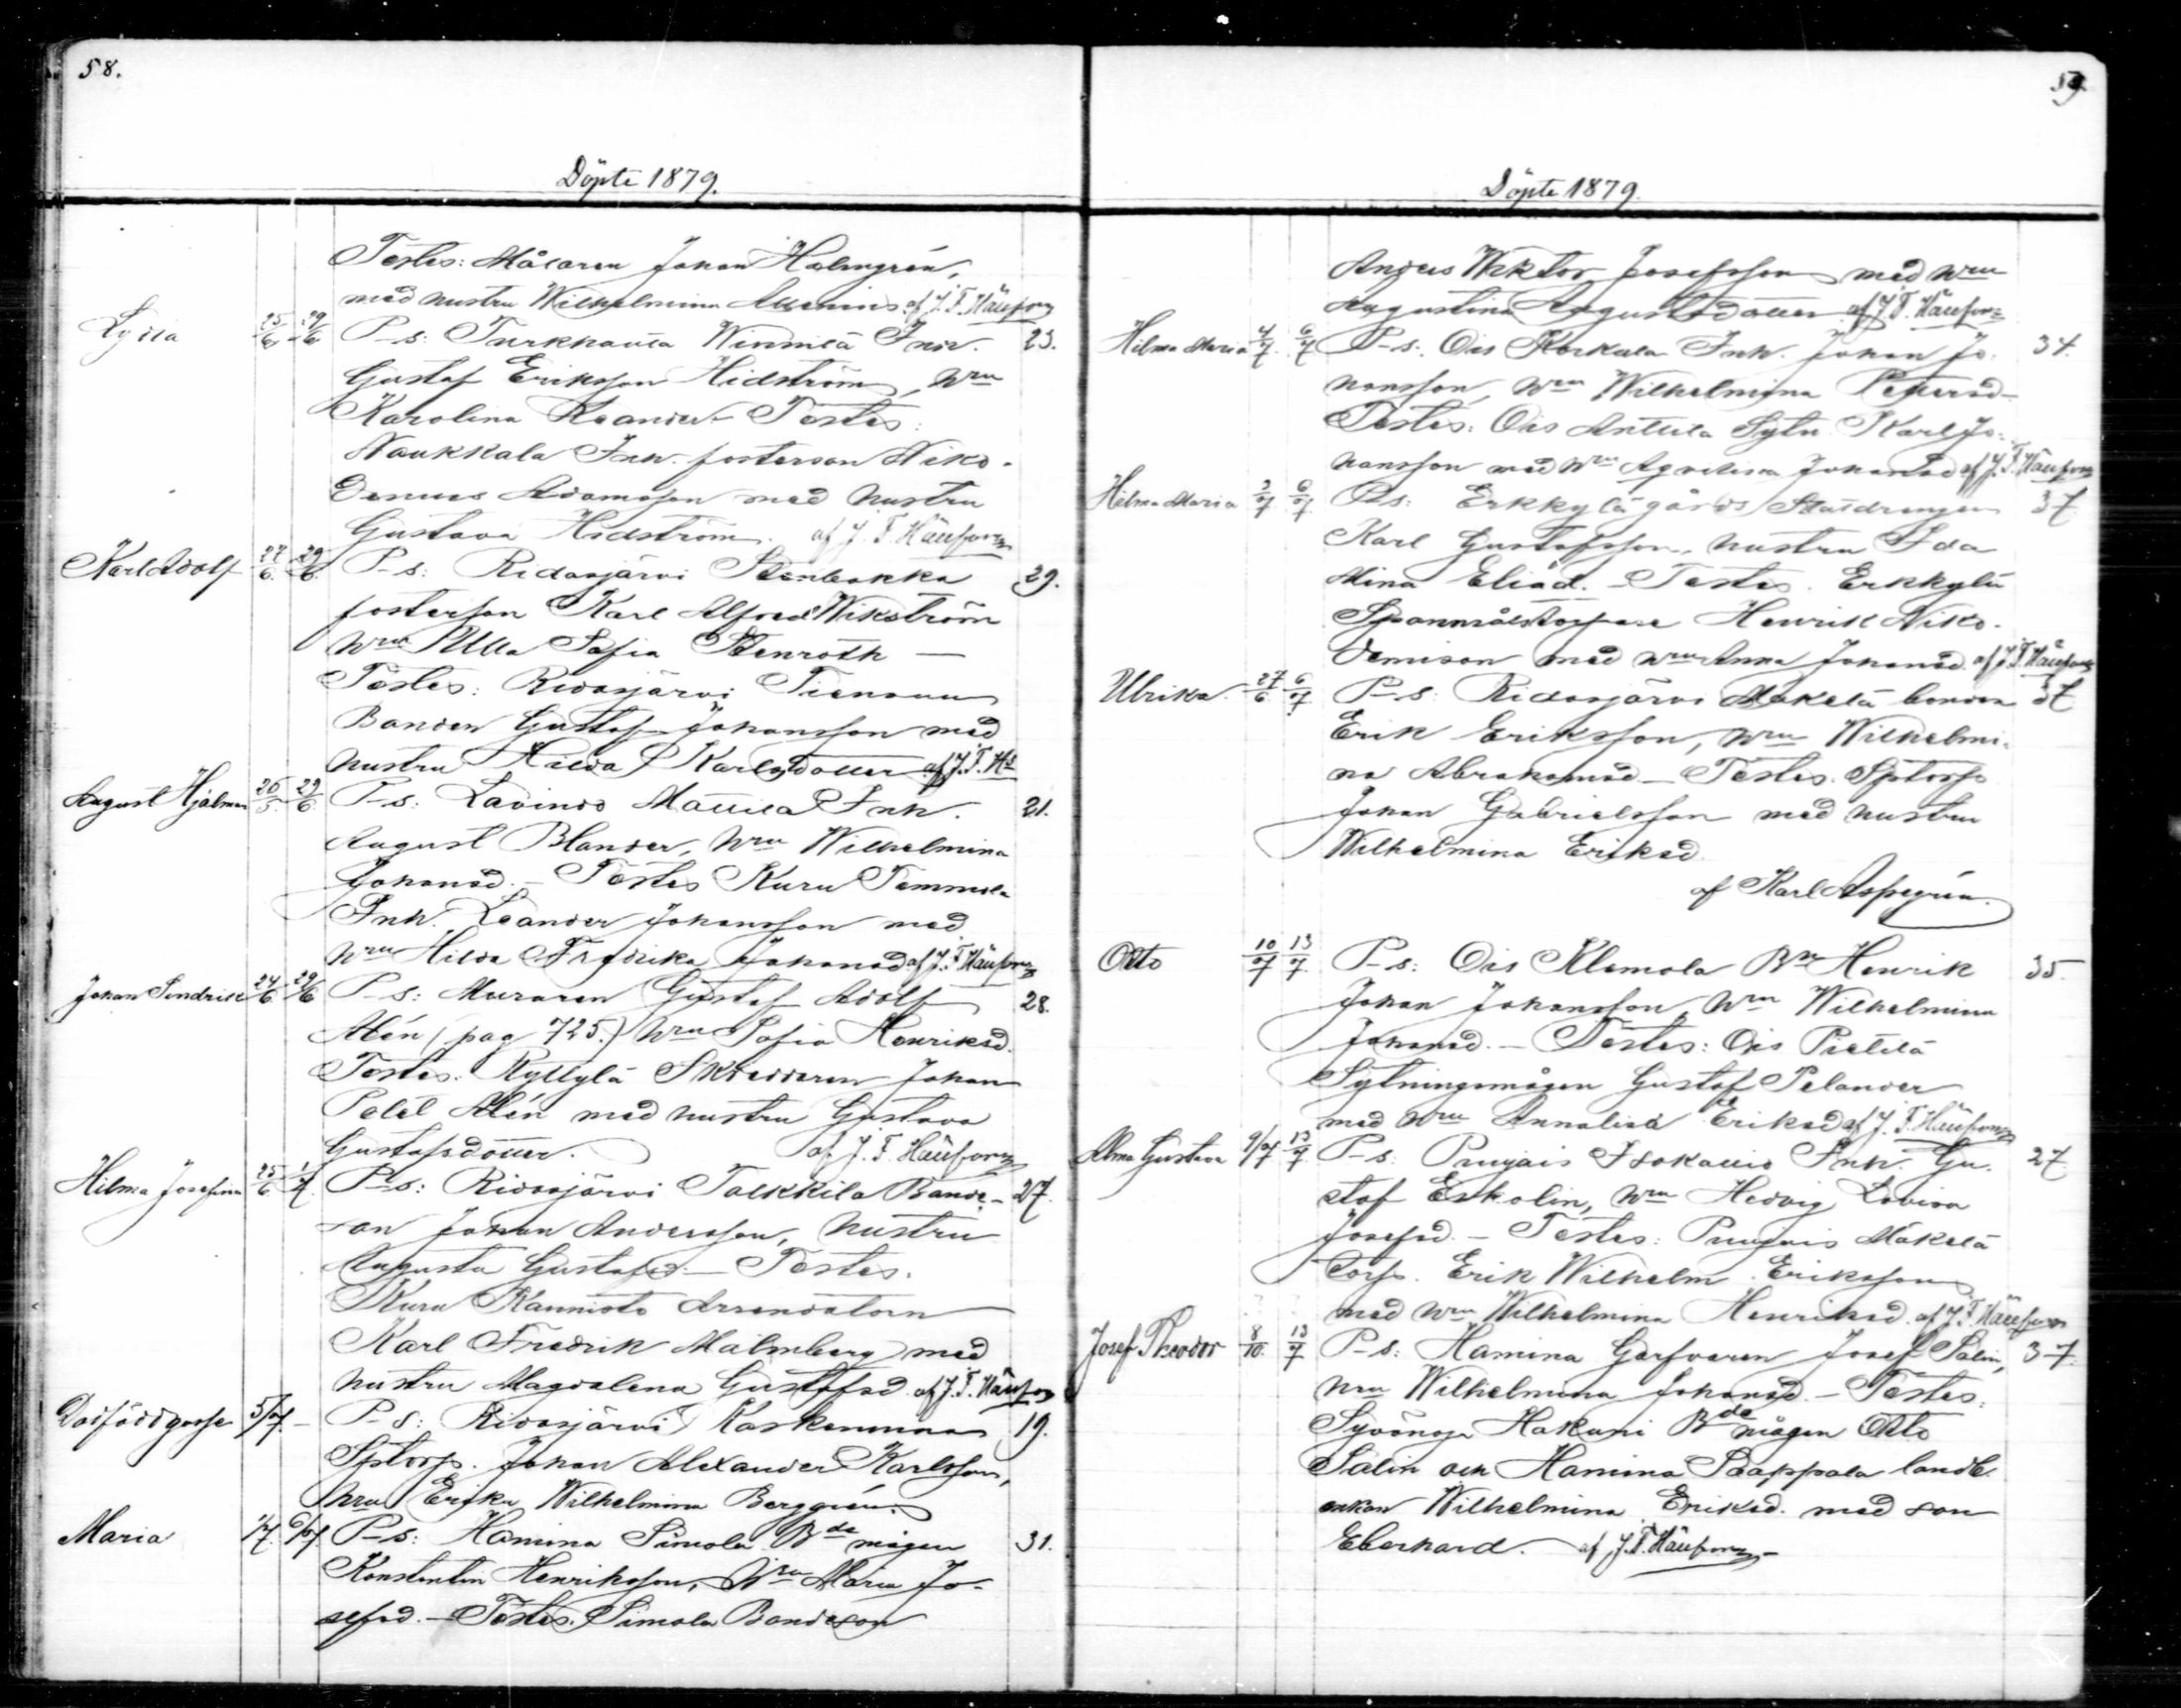 58.
Döpte 1879.
Testes: Målaren Johan Holmgrén,
med hustru Wilhelmina af J. F. Häufong
Lydia 25/6 29/6 P-s: Turkhauta Winnilä Inh. 23.
Gustaf Eriksson Hidström, Hru
Karolina Leander Testes:
Naukkala Inh. fosterson Niko-
demus Adamsson med hustru
Gustava Hidström. af J. F. Häufong
Karl Adolf 27/6 29/6 P-s: Ridasjärvi Stenbakka 29.
fosterson Karl Alfred Wikström
Hru Ulla Sofia Stenroth —
Testes: Ridasjärvi Tiensuu
Bonden Gustaf Johansson med
hustru Hilda Karlsdotter af J. F. Hg
August Hjalmar 26/5 29/6 P-s: Lavinto Mattila Inh. 21.
August Blander, Hru Wilhelmina
Johansd. – Testes Kuru Tommola
Inh. Leander Johansson med
Hru Hilda Fredrika Johansd af J. F. Häufong
Johan Sendrik 24/6 29/6 P-s: Muraren Gustaf Adolf 28.
Alén (pag 725.) Hru Sofia Henriksd.
Testes. Kyttylä Skräddaren Johan
Alén med hustru Gustava
Gustafsdotter. af J. F. Häufong
Hilma Josefina 25/6 1/7 P-s: Ridasjärvi Talkkila Bonde- 27.
son Johan Andersson, hustru
Augusta Gustafsd – Testes.
Kuru Kannisto Arrendatorn
Karl Fredrik Malmberg med
hustru Magdalena Gustafsd af J. F. Häufong
Dödfödd gosse 5/7. – P-s: Ridasjärvi Koskenmaa 19.
Sptorp. Johan Alexander Karlsson,
Hru Erika Wilhelmina Berggrén.
Maria 1/7. 6/7 P-s: Hamina Simola Bde mågen 31.
Konstantin Henriksson, Hru Maria Jo-
sefsd. – Testes. Simola Bondeson
59.
Döpte 1879.
Wiktor Josefsson med Hru
Augustina Augustsdotter af J. F. Häufong
Hilma Maria 4/7 6/7 P-s. Ois Korkala Inh. Johan Jo- 34.
hansson, Hru Wilhelmina Pettersd –
Testes: Ois Anttila Sytn. Karl Jo-
hansson med Hru Johansd af J. F. Häufong
Hilma Maria 2/7 6/7 P-s: Erkkylä gårds Staldrengen 37.
Karl Gustafsson, hustru Ida
Mina Eliad. – Testes. Erkkylä
Spanmålstorpare Henrik Niko-
demison med Hru Anna Johansd. af J. F. Häufong
Ulrika. 27/6 6/7 P-s: Ridasjärvi Mäkelä bonden 37
Erik Eriksson, Hru Wilhelmi-
na Abrahamsd – Testes. Sptorp
Johan Gabrielsson med hustru
Wilhelmina Eriksd
af Karl Aspegrén.
Otto 10/7 13/7 P-s: Ois Klemola Bn Henrik 35.
Johan Johansson, Hru Wilhelmina
Johansd. – Testes: Ois Pietilä
Sytningsmågen Gustaf Pelander
med Hru Annalisa Eriksd af J. F. Häufong
Alma Gustava 9/7 13/7 P-s: Pungais Isokallio Inh. Gu- 27.
staf Eskolin, Hru Hedvig Lovisa
Josefsd. – Testes: Pungais Mäkelä
Torp. Erik Wilhelm Eriksson
med Hru Wilhelmina Henriksd. af J. F. Häufong
Josef Theodor 8/10. 13/7 P-s: Hamina Garfvaren Josef Salin, 37.
Hru Wilhelmina Johansd. – Testes.
Syvänoja Hakuni Bde mågen Otto
Salin och Hamina Paappala landb.
enkan Wilhelmina Eriksd. med son
Eberhard. af J. F. Häufong –